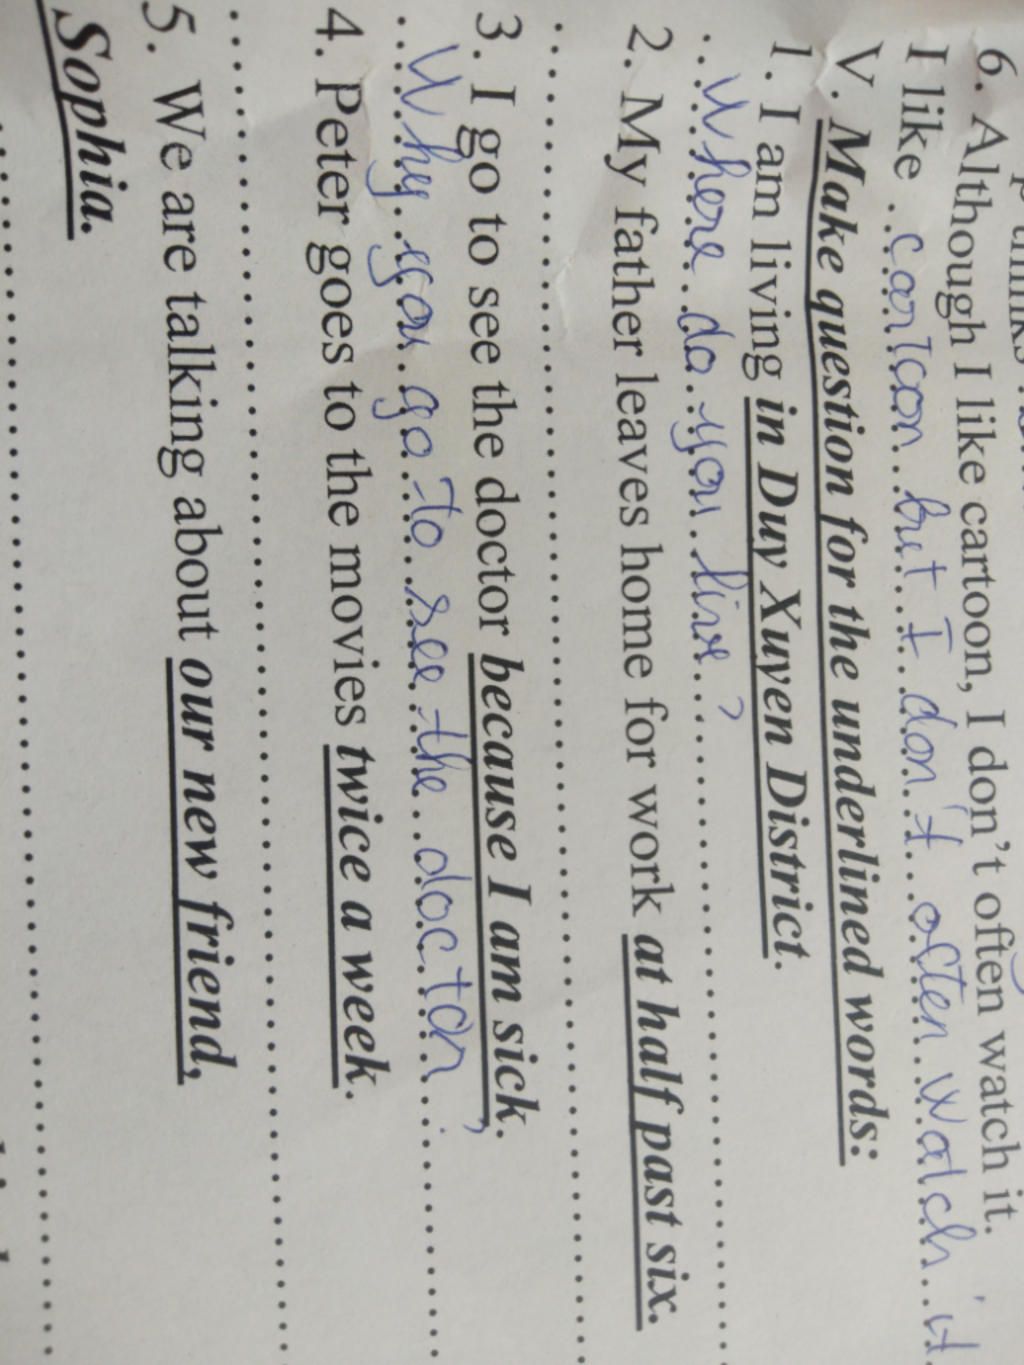 6. Although I like cartoon, I don't often watch it.
I like ..cartoon..but..I..don't..often..watch..it
V. Make question for the underlined words:
1. I am living in Duy Xuyen District.
Where do you live?
2. My father leaves home for work at half past six.
3. I go to see the doctor because I am sick.
Why you go to see the doctor
4. Peter goes to the movies twice a week.
5. We are talking about our new friend,
Sophia.